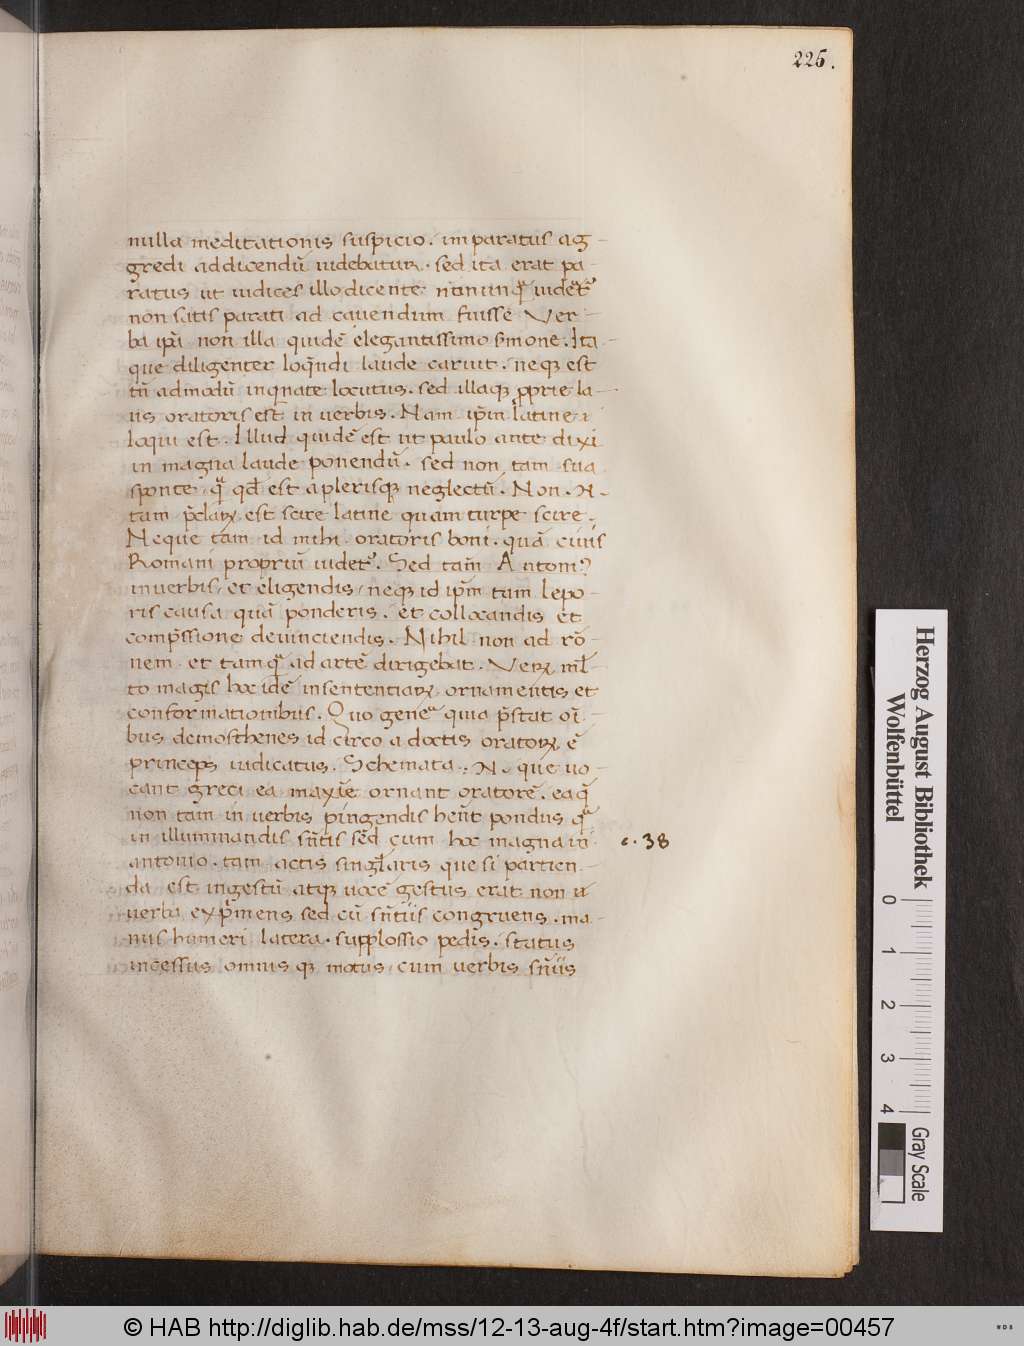 225.
nulla meditationis suspicio. imparatus ag-
gredi addicendū uidebatur. sed ita erat pa-
ratus ut iudices illo dicente nōnunq̄ uidēr̄t
non satis parati ad cauendum fuisse Ver-
ba ip̄a non illa quidē elegantissimo s̄mone. Ita
que diligenter loq̄ndi laude caruit. neqꝫ est
tū admodū inqnate locutus. sed illaqꝫ ꝓprie la-
us oratoris est in uerbis. Nam ip̄m latine
loqui est. Illud quidē est ut paulo ante dixi
in magna laude ponendū. sed non tam sua
sponte q̄ qđ est a plerisqꝫ neglectū. Non. N.
tam p̄claꝝ est scire latine quam turpe scire.
Neque tam id mihi oratoris boni. quā ciuis
Romani propriū uidet᷑. Sed tam̄ Antoni᷒
in uerbis, et eligendis, neqꝫ id ip̄m tam lepo-
ris causa quā ponderis. et collocandis et
comp̄ssione deuinciendis. Nihil non ad rō-
nem et tamq̄ ad artē dirigebat. Veꝝ ml̄-
to magis hoc idē in sententiaꝝ ornamentis et
conformationibus. Quo genē quia p̄stat oī-
bus demosthenes id circo a doctis oratoꝝ ē
princeps iudicatus. Schemata. N. que uo-
cant greci ea maxīe ornant oratorē. eaq̄
non tam in uerbis pingendis hēnt pondus q̄
in illuminandis sn̄tīs sed cum hec magna in
c. 38
antonio. tam actis singl̄aris que si partien-
da est in gestū atqꝫ uocē gestus erat non ū
uerba exp̄mens sed cū sn̄tiīs congruens. ma-
nus humeri latera. supplossio pedis. status
incessus omnis qꝫ motus cum uerbis sn̄iīs
Herzog August Bibliothek
Wolfenbüttel
0 1 2 3 4
Gray Scale
© HAB http://diglib.hab.de/mss/12-13-aug-4f/start.htm?image=00457